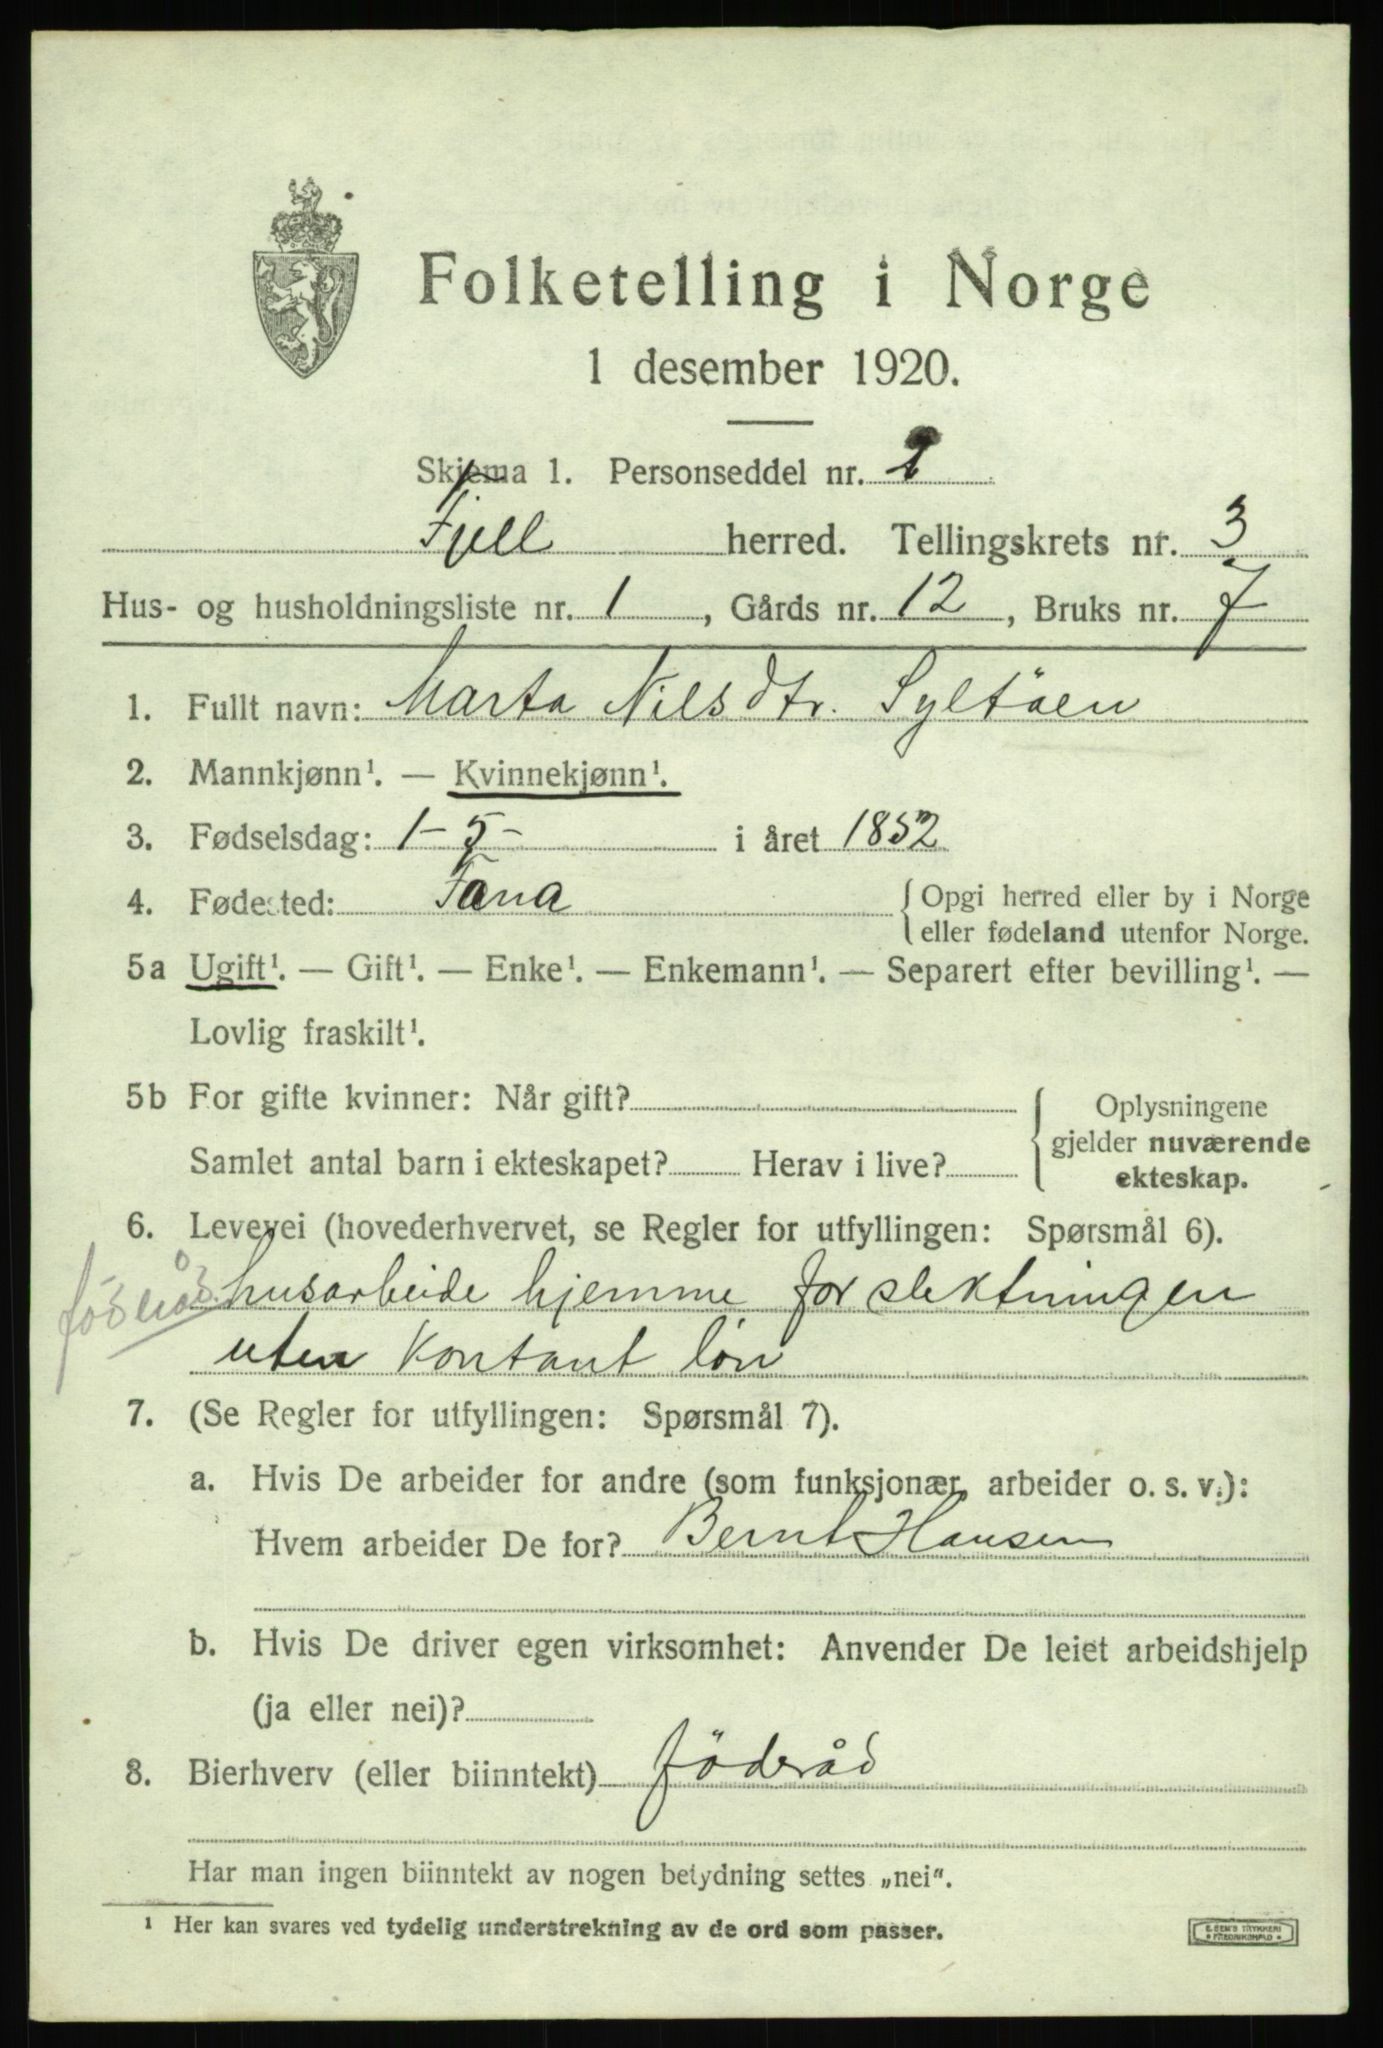 Folketelling i Norge
1 desember 1920.
Skjema 1. Personseddel nr.
Fjell herred. Tellingskrets nr. 3
Hus- og husholdningsliste nr. 1, Gårds nr. 12, Bruks nr. 7
1. Fullt navn: Marta Nilsdtr. Syltöen
2. Mannkjønn¹. — Kvinnekjønn¹.
3. Fødselsdag: 1-5- i året 1852
4. Fødested: Fana { Opgi herred eller by i Norge
eller fødeland utenfor Norge.
5a Ugift¹. — Gift¹. — Enke¹. — Enkemann¹. — Separert efter bevilling¹. —
Lovlig fraskilt¹.
5b For gifte kvinner: Når gift?
Samlet antal barn i ekteskapet? Herav i live?
{ Oplysningene
gjelder nuværende
ekteskap.
6. Levevei (hovederhvervet, se Regler for utfyllingen: Spørsmål 6).
föderåd. husarbeide hjemme for slektningen
uten kontant løn
7. (Se Regler for utfyllingen: Spørsmål 7).
a. Hvis De arbeider for andre (som funksjonær, arbeider o. s. v.):
Hvem arbeider De for? Bernt Hansen
b. Hvis De driver egen virksomhet: Anvender De leiet arbeidshjelp
(ja eller nei)?
8. Bierhverv (eller biinntekt) föderåd
Har man ingen biinntekt av nogen betydning settes „nei“.
¹ Her kan svares ved tydelig understrekning av de ord som passer.